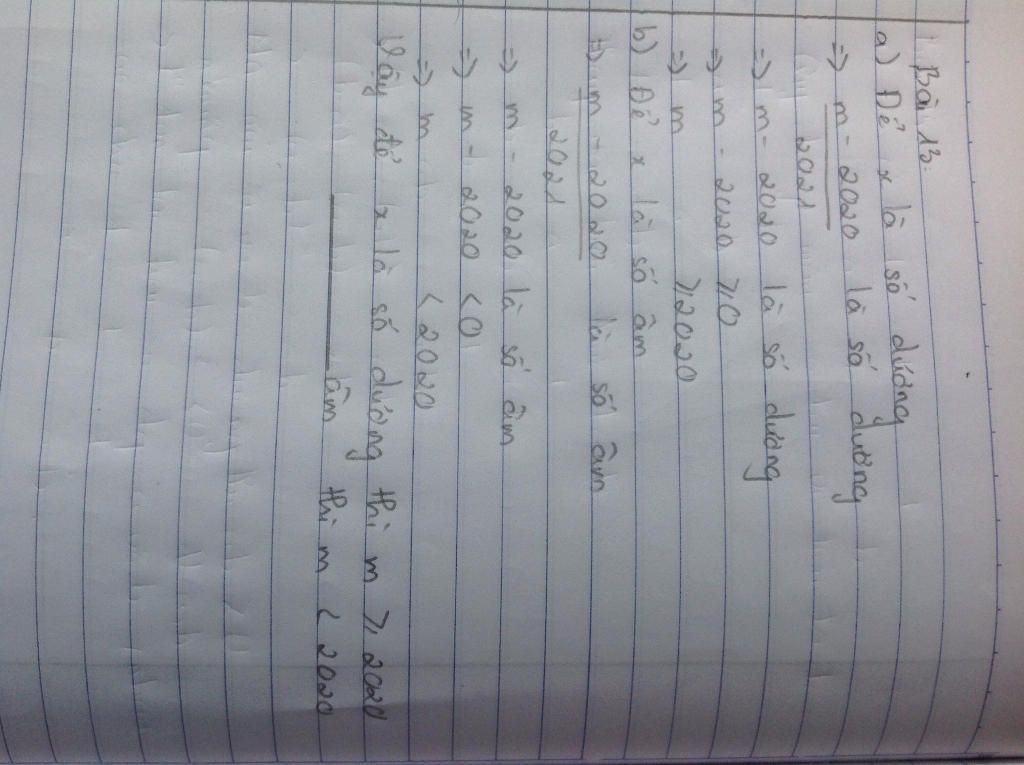 Bài 13:
a) Để x là số dương
=> m - 2020 là số dương
2021
=> m - 2020 là số dương
=> m - 2020 ⩾ 0
=> m ⩾ 2020
b) Để x là số âm
=> m - 2020 là số âm
2021
=> m - 2020 là số âm
=> m - 2020 < 0
=> m < 2020
Vậy để x là số dương thì m ⩾ 2020
âm thì m < 2020